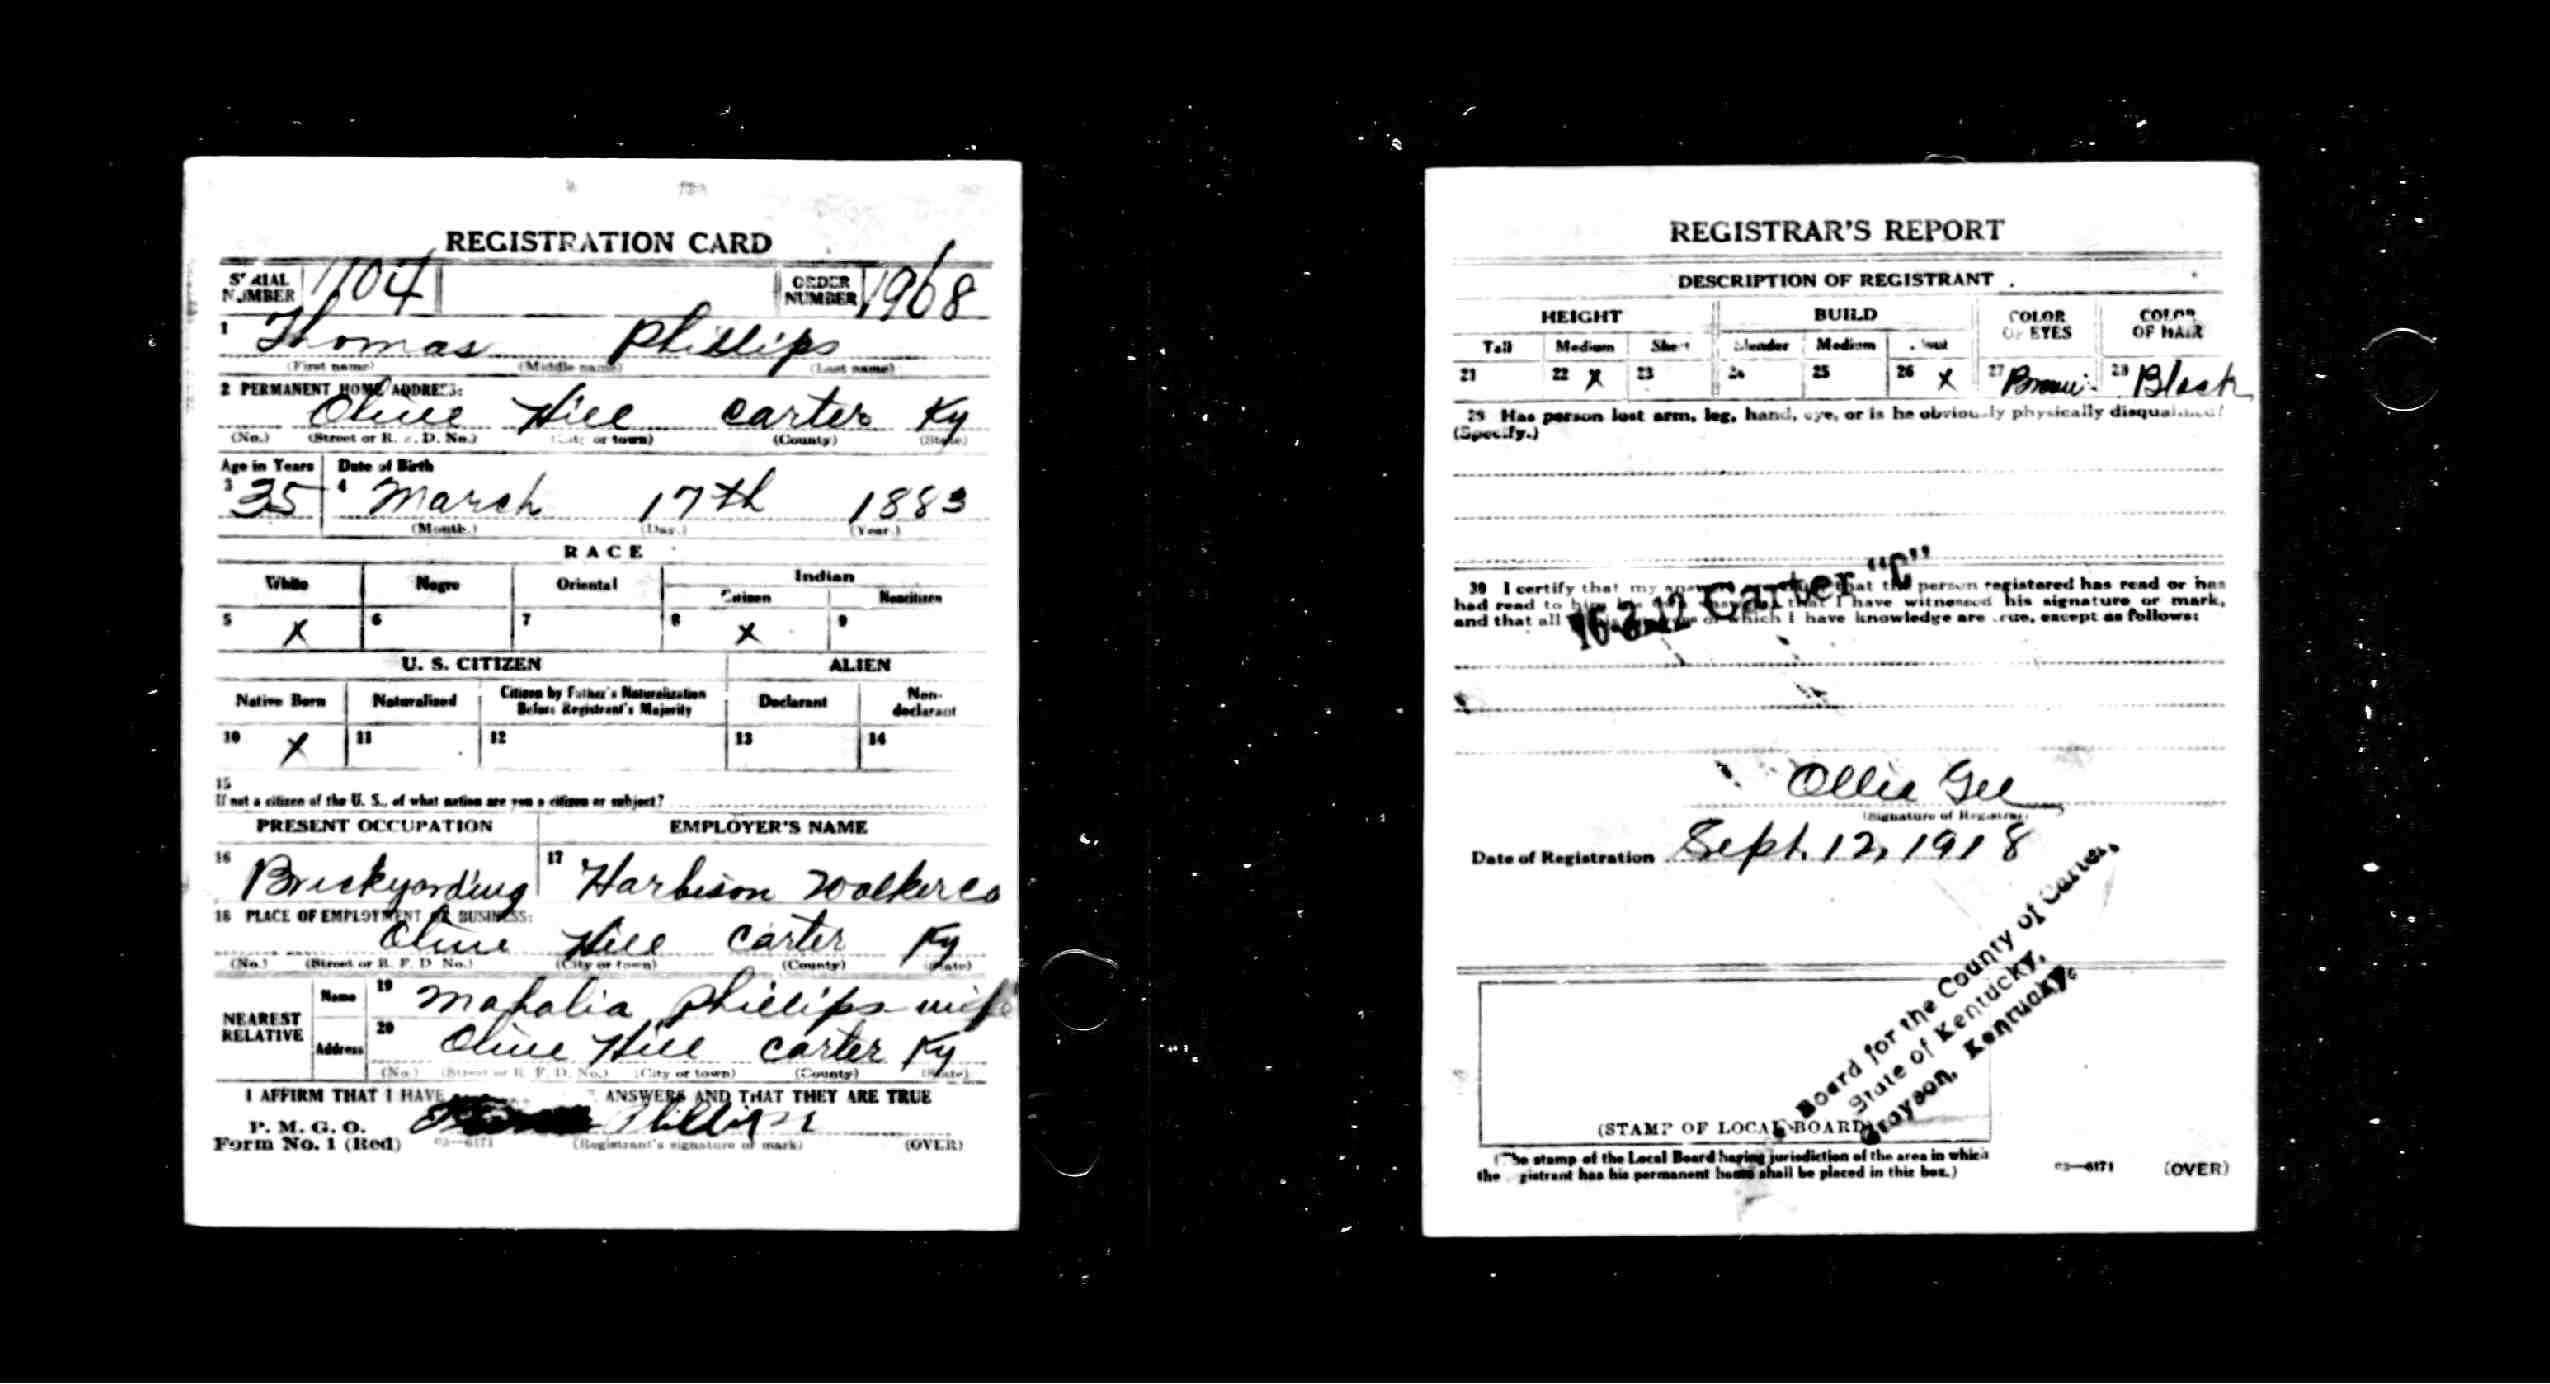 REGISTRATION CARD
SERIAL NUMBER 1104 ORDER NUMBER 1968
1 Thomas Phillips
(First name) (Middle name) (Last name)
2 PERMANENT HOME ADDRESS:
Olive Hill Carter Ky
(No.) (Street or R. F. D. No.) (City or town) (County) (State)
Age in Years Date of Birth
3 35 4 March 17th 1883
(Month.) (Day.) (Year.)
RACE
White Negro Oriental Indian
Citizen Noncitizen
5 X 6 7 8 X 9
U. S. CITIZEN ALIEN
Native Born Naturalized Citizen by Father's Naturalization Before Registrant's Majority Declarant Non-declarant
10 X 11 12 13 14
15
If not a citizen of the U. S., of what nation are you a citizen or subject?
PRESENT OCCUPATION EMPLOYER'S NAME
16 Brickyarding 17 Harbison Walker Co
18 PLACE OF EMPLOYMENT OR BUSINESS:
Olive Hill Carter Ky
(No.) (Street or R. F. D. No.) (City or town) (County) (State)
NEAREST RELATIVE Name 19 Mahalia Phillips wife
Address 20 Olive Hill Carter Ky
(No.) (Street or R. F. D. No.) (City or town) (County) (State)
I AFFIRM THAT I HAVE ANSWERS AND THAT THEY ARE TRUE
P. M. G. O.
Form No. 1 (Red) 03—6171 Phillips (Registrant's signature or mark) (OVER)
REGISTRAR'S REPORT
DESCRIPTION OF REGISTRANT
HEIGHT BUILD COLOR OF EYES COLOR OF HAIR
Tall Medium Short Slender Medium Stout
21 22 X 23 24 25 26 X 27 Brown 28 Black
29 Has person lost arm, leg, hand, eye, or is he obviously physically disqualified?
(Specify.)
30 I certify that my answers that the person registered has read or has
had read to him that I have witnessed his signature or mark,
and that all of which I have knowledge are true, except as follows:
16-2-12 Carter "C"
Ollie Gee
(Signature of Registrar)
Date of Registration Sept. 12, 1918
Board for the County of Carter,
State of Kentucky,
Grayson, Kentucky.
(STAMP OF LOCAL BOARD)
(The stamp of the Local Board having jurisdiction of the area in which
the registrant has his permanent home shall be placed in this box.)
03—6171 (OVER)